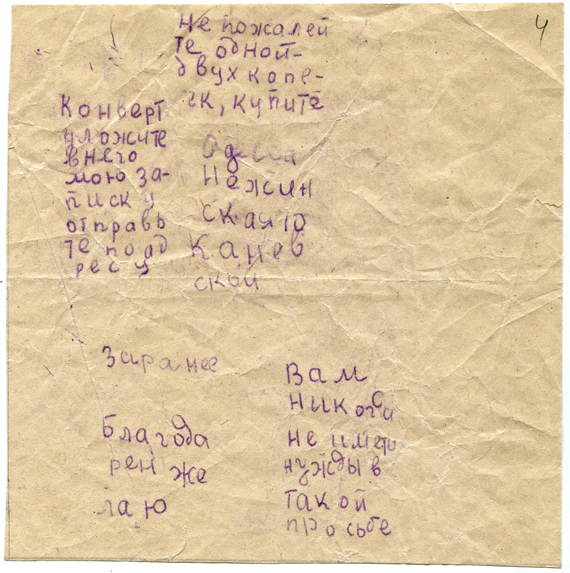 4
Не пожалей
те одной-
двух копе-
ек, купите
Конверт
уложите
в него
мою за-
писку
отправь
те по ад
ресу
Одесса
Нежин
ская 10
Канев
ской
Заранее
Благода
рен же
лаю
Вам
никогда
не иметь
нужды в
такой
просьбе